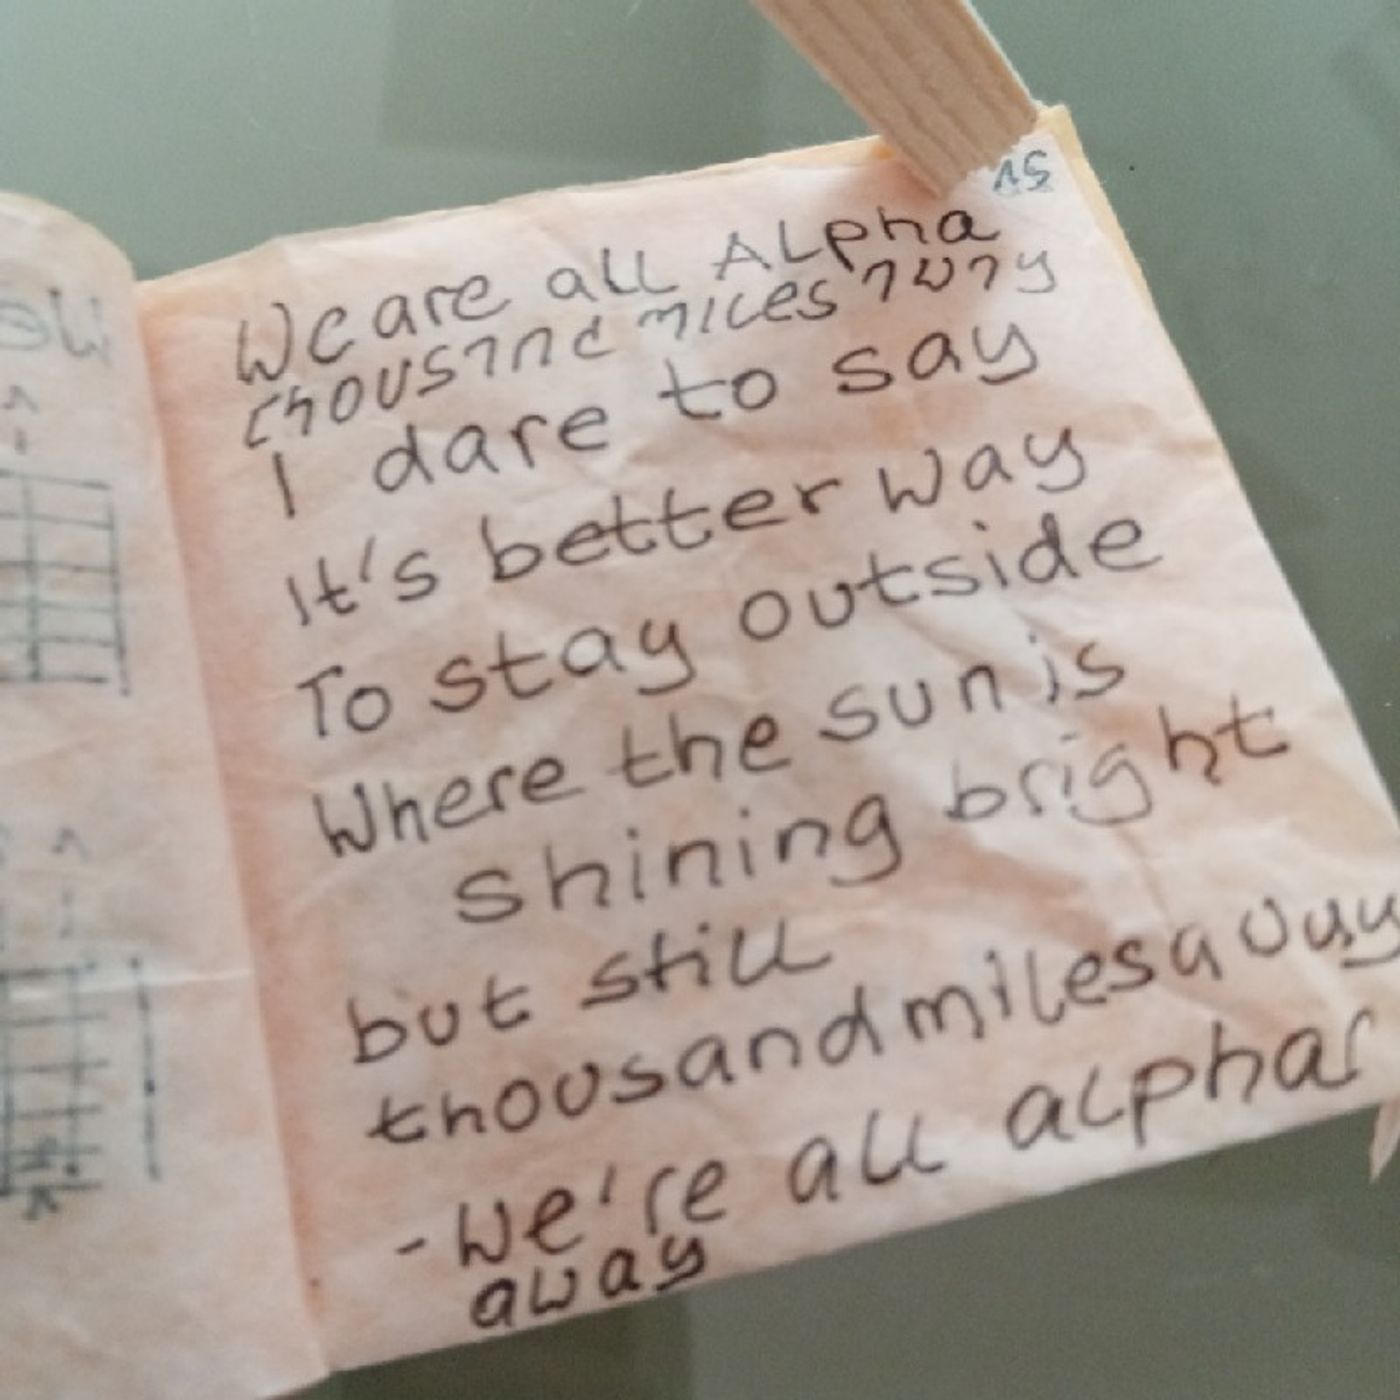 15
We are all ALpha
thousand miles away
I dare to say
It's better way
To stay outside
Where the sun is
shining bright
but still
thousand miles away
- we're all alphar
away